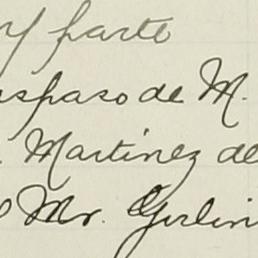 y parte
aspaso de M.
Martinez de
Mr. Gerlin